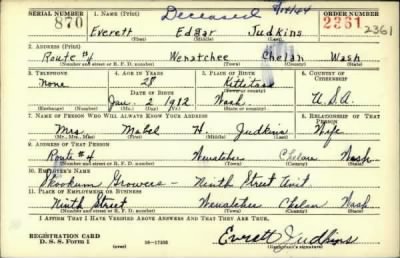 Deceased 8/14/44
SERIAL NUMBER 1. NAME (Print) ORDER NUMBER
870 Everett Edgar Judkins 2361 2361
(First) (Middle) (Last)
2. ADDRESS (Print)
Route #4 Wenatchee Chelan Wash
(Number and street or R. F. D. number) (Town) (County) (State)
3. TELEPHONE 4. AGE IN YEARS 5. PLACE OF BIRTH 6. COUNTRY OF CITIZENSHIP
None 28 Kittitas
DATE OF BIRTH (Town or county)
Jan. 2 1912 Wash. U.S.A.
(Exchange) (Number) (Mo.) (Day) (Yr.) (State or country)
7. NAME OF PERSON WHO WILL ALWAYS KNOW YOUR ADDRESS 8. RELATIONSHIP OF THAT PERSON
Mrs Mabel H. Judkins Wife
(Mr., Mrs., Miss) (First) (Middle) (Last)
9. ADDRESS OF THAT PERSON
Route #4 Wenatchee Chelan Wash
(Number and street or R. F. D. number) (Town) (County) (State)
10. EMPLOYER'S NAME
Skookum Growers - Ninth Street Unit.
11. PLACE OF EMPLOYMENT OR BUSINESS
Ninth Street Wenatchee Chelan Wash
(Number and street or R. F. D. number) (Town) (County) (State)
I AFFIRM THAT I HAVE VERIFIED ABOVE ANSWERS AND THAT THEY ARE TRUE.
REGISTRATION CARD
D. S. S. FORM 1 16-17105 Everett Judkins
(Registrant's signature)